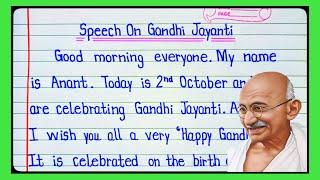 PAGE
Speech On Gandhi Jayanti
Good morning everyone. My name
is Anant. Today is 2nd October an
are celebrating Gandhi Jayanti. A
I wish you all a very "Happy Gand
It is celebrated on the birth